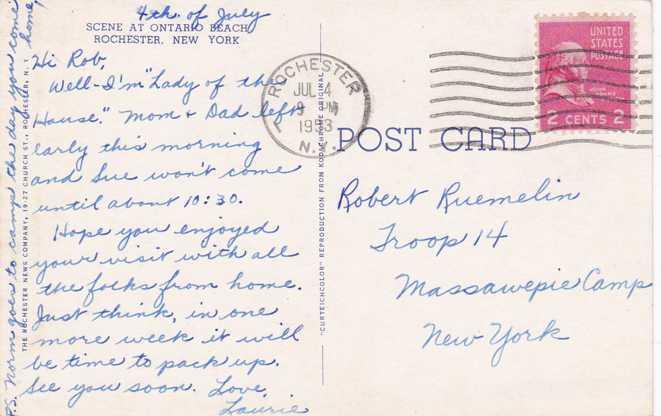 4th of July
SCENE AT ONTARIO BEACH
ROCHESTER, NEW YORK
Hi Rob,
Well-I'm "Lady of the
House." Mom & Dad left
early this morning
and Sue won't come
until about 10:30.
Hope you enjoyed
your visit with all
the folks from home.
Just think, in one
more week it will
be time to pack up.
See you soon. Love,
Laurie
P.S. Norm goes to camp the day you come
home,
THE ROCHESTER NEWS COMPANY, 19-27 CHURCH ST., ROCHESTER, N. Y.
"CURTEICHCOLOR" REPRODUCTION FROM KODACHROME ORIGINAL
ROCHESTER
JUL 4
PM
1953
N.Y.
UNITED
STATES
POSTAGE
JOHN ADAMS
2 CENTS 2
POST CARD
Robert Ruemelin
Troop 14
Massawepie Camp
New York